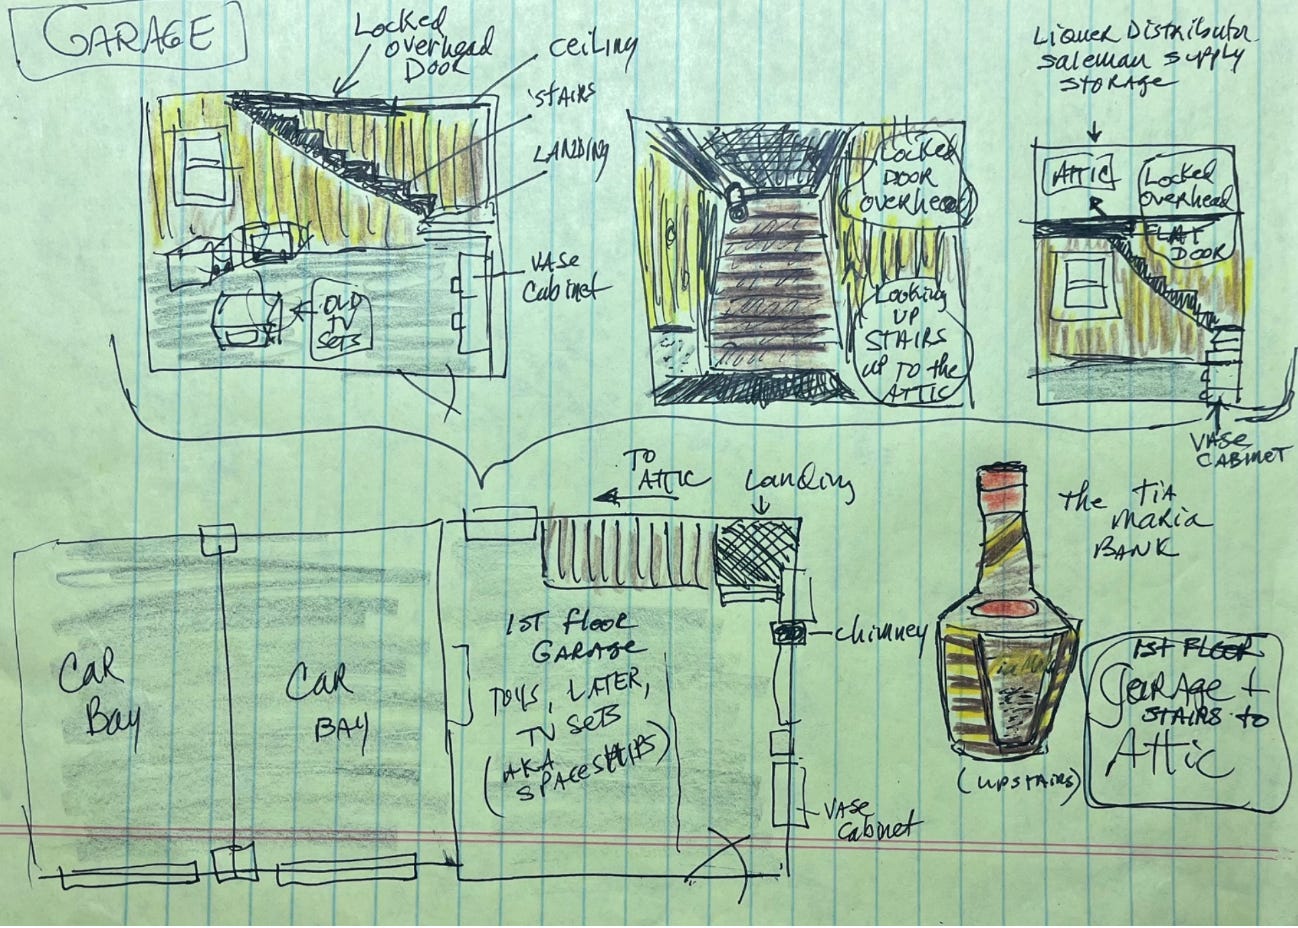 GARAGE
Locked
overhead
Door
ceiling
STAIRS
LANDING
VASE
Cabinet
OLD
TV
SETS
Locked
DOOR
overhead
Looking
UP
STAIRS
up TO the
ATTIC
Liquer Distributor
Saleman Supply
STORAGE
ATTIC
Locked
overhead
FLAT
DOOR
VASE
CABINET
TO
ATTIC
Landing
Car
Bay
Car
BAY
1ST floor
GARAGE
TOYS, LATER,
TV SETS
(AKA
SPACESHIPS)
chimney
VASE
Cabinet
the TIA
MARIA
BANK
(UPSTAIRS)
1ST FLOOR
Garage +
STAIRS to
Attic